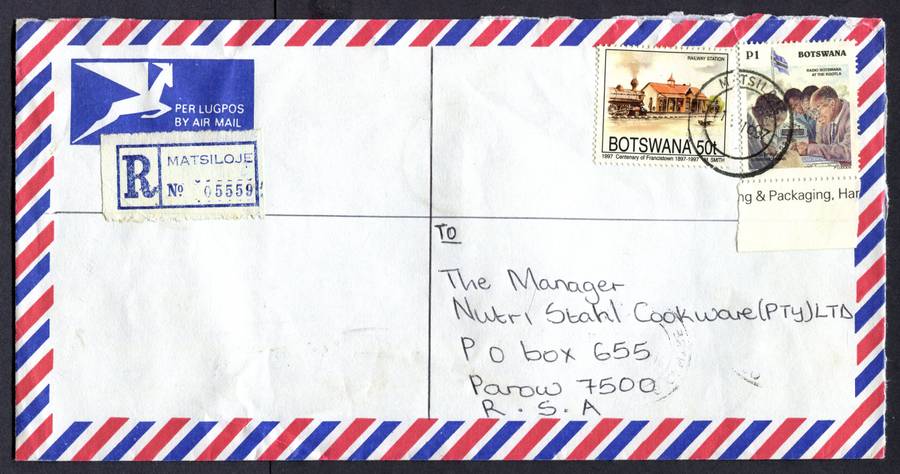 PER LUGPOS
BY AIR MAIL
R
MATSILOJE
No 05559
RAILWAY STATION
BOTSWANA 50t
1997 Centenary of Francistown 1897-1997 M. SMITH
P1 BOTSWANA
RADIO BOTSWANA
AT THE KGOTLA
MATSILO
ng & Packaging, Har
TO
The Manager
Nutri Stahl Cookware (PTy) LTD
P O box 655
Parow 7500
R. S. A